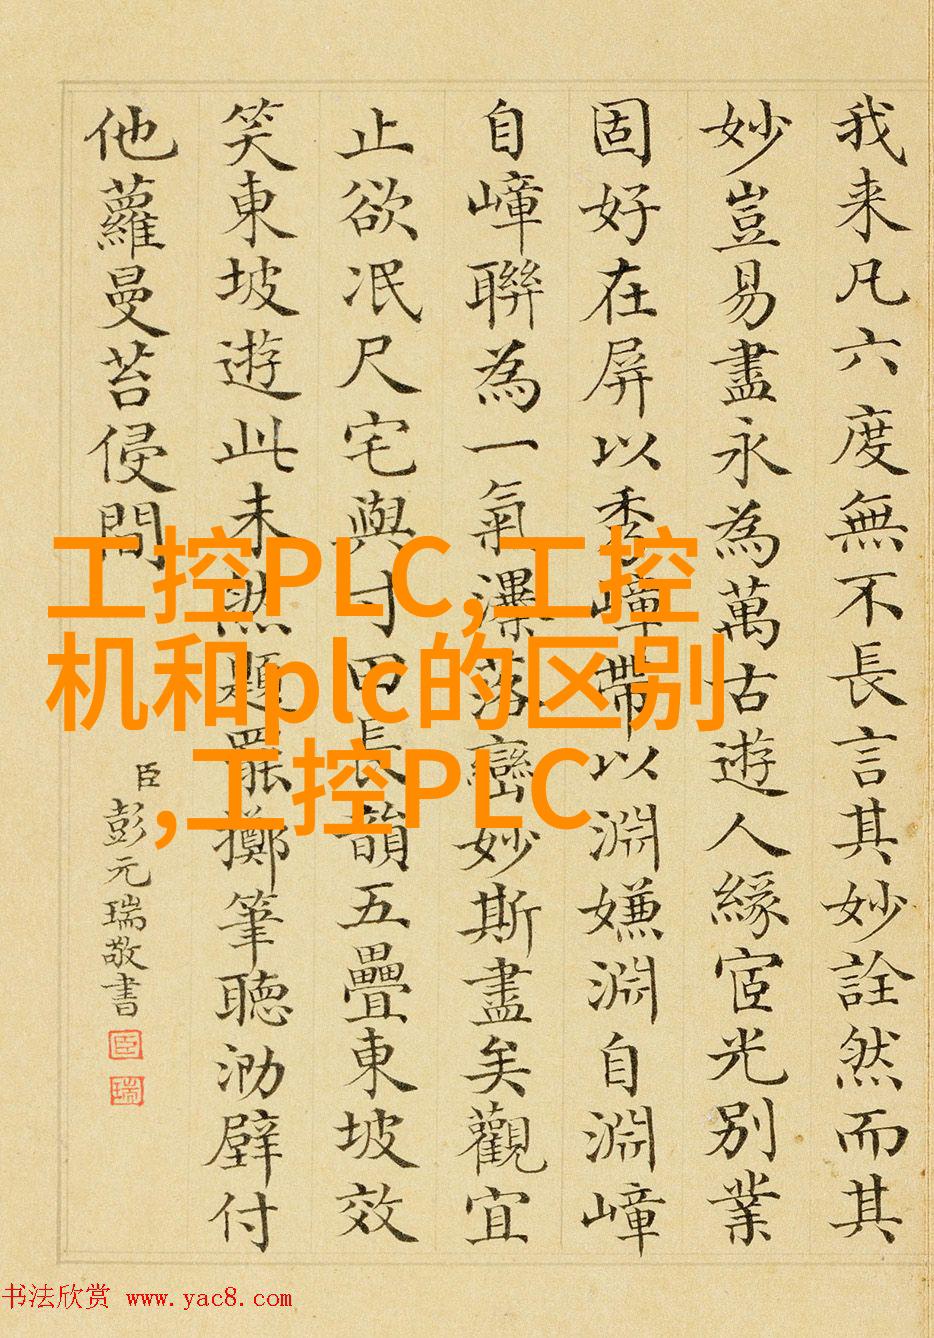 我来凡六度無不長言其妙詮然而其
妙豈易盡永為萬古遊人緣宧光別業
固好在屏以秀嶂帶以淵嫌淵自淵嶂
自嶂聯為一氣瀑落巒妙斯盡矣觀宜
止欲泯尺宅與寸田長韻五疊東坡效
笑東坡遊此未然題罷擲筆聽泐壁付
他蘿曼苔侵問
臣彭元瑞敬書
臣
瑞
工控PLC,工控
机和plc的区别
,工控PLC
书法欣赏 www.yac8.com